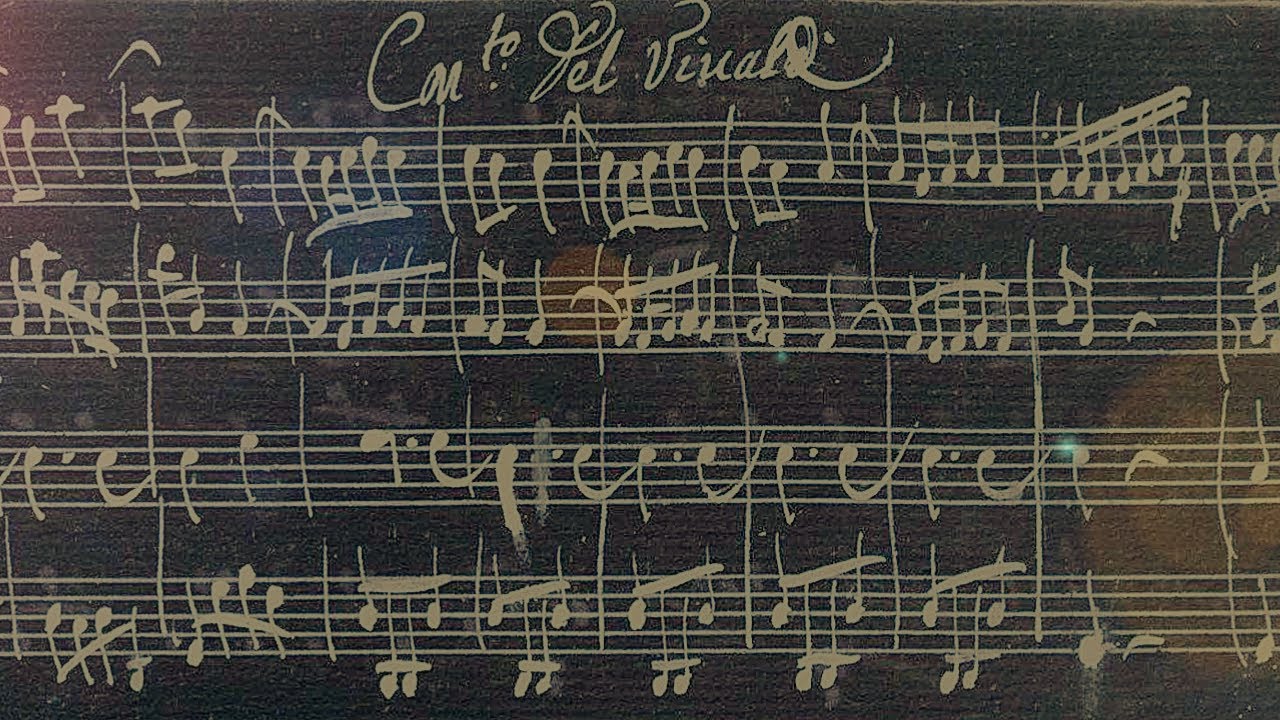 Con.to Del Viualdi